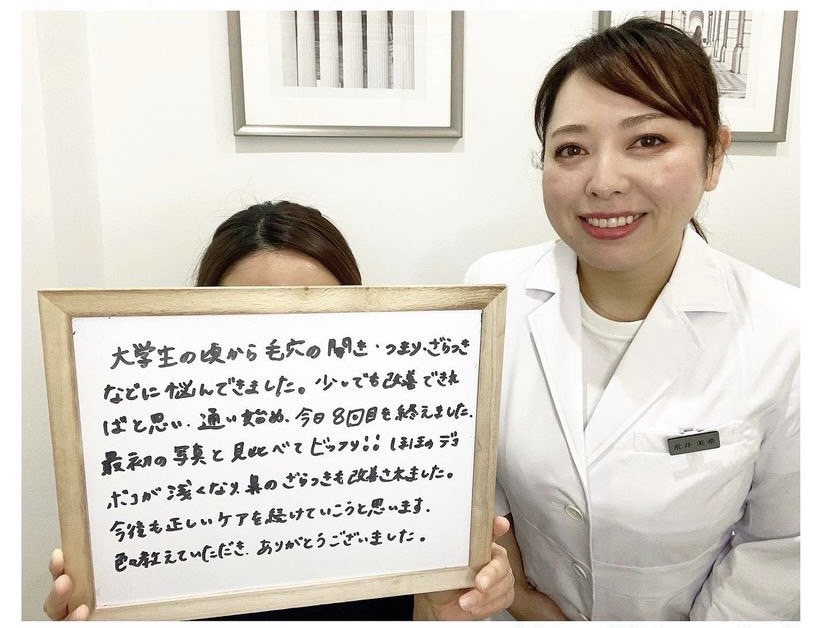 大学生の頃から毛穴の開き・つまり・ざらつき
などに悩んできました。少しでも改善できれ
ばと思い、通い始め、今日8回目を終えました。
最初の写真と見比べてビックリ!! ほほのデコ
ボコが浅くなり、鼻のざらつきも改善されました。
今後も正しいケアを続けていこうと思います。
色々教えていただき、ありがとうございました。
荒井 美希